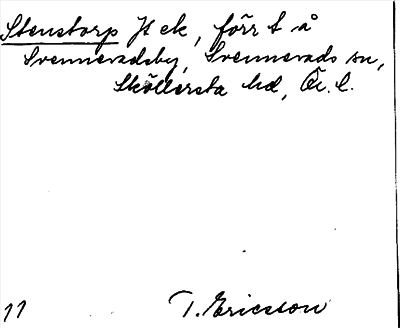 Stenstorp Jt ek, förr t å
Svennevadsby, Svennevads sn,
Sköllersta hd, Ör. l.
11 T. Ericsson